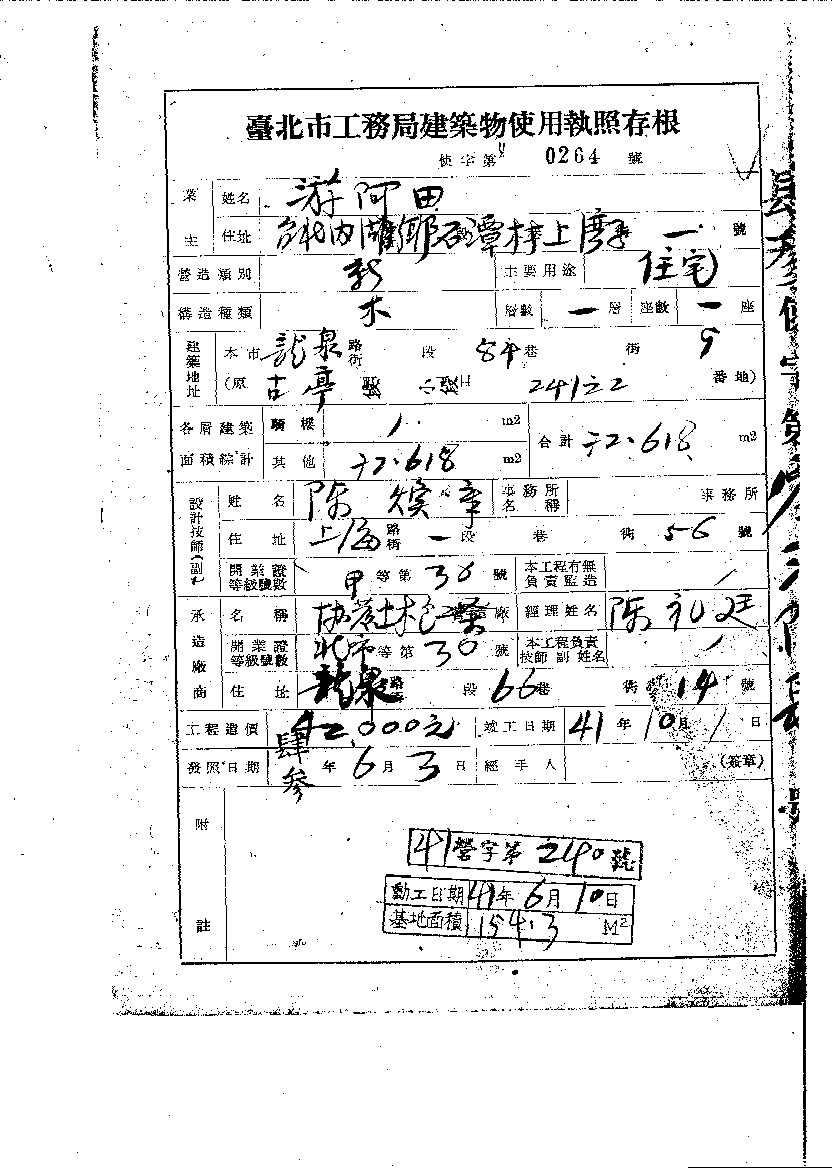 臺北市工務局建築物使用執照存根
使字第 0264 號
業主 姓名 游阿田
住址 一 號
營造類別 新 主要用途 住宅
構造種類 木 層數 一 層 座數 一 座
建築地址 本市 龍泉 路街 段 84 巷 衖 9
(原 古亭 段 241之2 番地)
各層建築面積綜計 騎樓 m2 合計 72.618 m2
其他 72.618 m2
設計技師(副) 姓名 陳煥章 事務所名稱 事務所
住址 上海 路街 一 段 巷 衖 56 號
開業證等級號數 甲 等第 30 號 本工程有無負責監造
承造廠商 名稱 廠 經理姓名 陳礼廷
開業證等級號數 北市 等第 30 號 本工程負責技師副姓名
住址 龍泉 段 66 巷 衖 14 號
工程造價 42,000元 竣工日期 41 年 10 月 1 日
發照日期 肆參 年 6 月 3 日 經手人 (簽章)
附註
41營字第240號
動工日期 41年6月10日
基地面積 154.3 M²